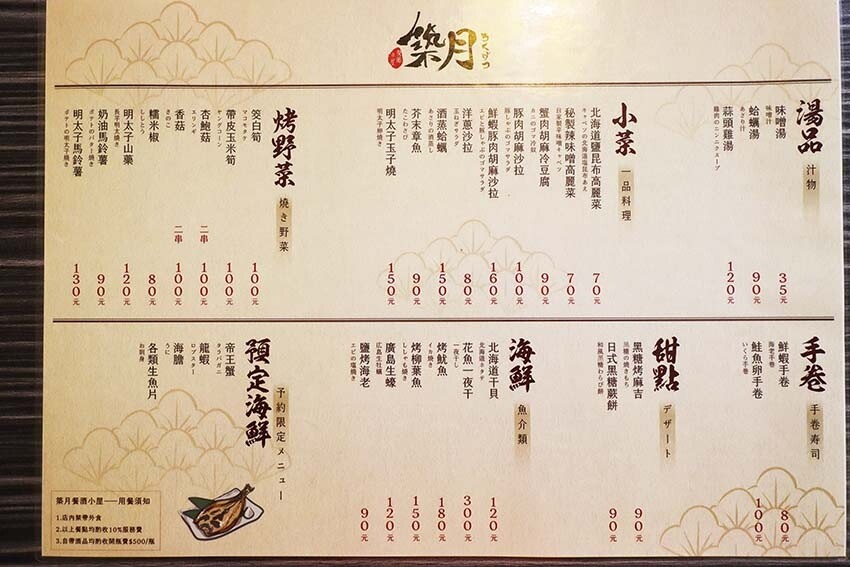 築月
ちくげつ
湯品
汁物
味噌湯 35元
味噌汁
蛤蠣湯 90元
あさり汁
蒜頭雞湯 120元
鶏肉のニンニクスープ
小菜
一品料理
北海道鹽昆布高麗菜 70元
キャベツの北海道塩昆布あえ
秘製辣味噌高麗菜 70元
自家製辛味噌キャベツ
蟹肉胡麻冷豆腐 90元
カニのゴマ冷豆腐
豚肉胡麻沙拉 100元
豚しゃぶのゴマサラダ
鮮蝦豚肉胡麻沙拉 160元
エビと豚しゃぶのゴマサラダ
洋蔥沙拉 80元
玉ねぎサラダ
酒蒸蛤蠣 150元
あさりの酒蒸
芥末章魚 90元
たこわさび
明太子玉子燒 150元
明太子卵焼き
烤野菜
焼き野菜
筊白筍 100元
マコモタケ
帶皮玉米筍 100元
ヤングコーン
杏鮑菇 二串 100元
エリンギ
香菇 二串 100元
きのこ
糯米椒 80元
ししとう
明太子山藥 120元
長芋明太焼き
奶油馬鈴薯 90元
ポテトのバター焼き
明太子馬鈴薯 130元
ポテトの明太子焼き
手卷
手巻寿司
鮮蝦手卷 80元
海老手巻
鮭魚卵手卷 100元
いくら手巻
甜點
デザート
黑糖烤麻吉 90元
黒糖の焼きもち
日式黑糖蕨餅 90元
和風黒糖わらび餅
海鮮
魚介類
北海道干貝 120元
北海道ホタテ
花魚一夜干 300元
一夜干し
烤魷魚 180元
イカ焼き
烤柳葉魚 150元
ししゃも焼き
廣島生蠔 120元
広島生牡蠣
鹽烤海老 90元
エビの塩焼き
預定海鮮
予約限定メニュー
帝王蟹
タラバガニ
龍蝦
ロブスター
海膽
うに
各類生魚片
お刺身
築月餐酒小屋——用餐須知
1.店內禁帶外食
2.以上餐點均酌收10%服務費
3.自帶酒品均酌收開瓶費$500/瓶